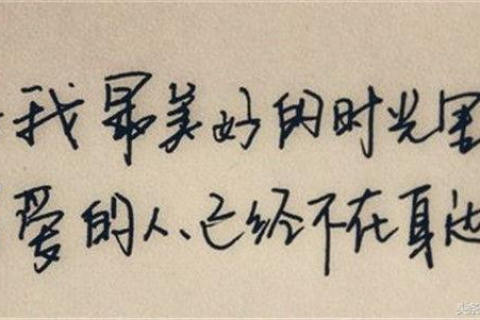 我最美好的时光里
爱的人、已经不在身边
头条